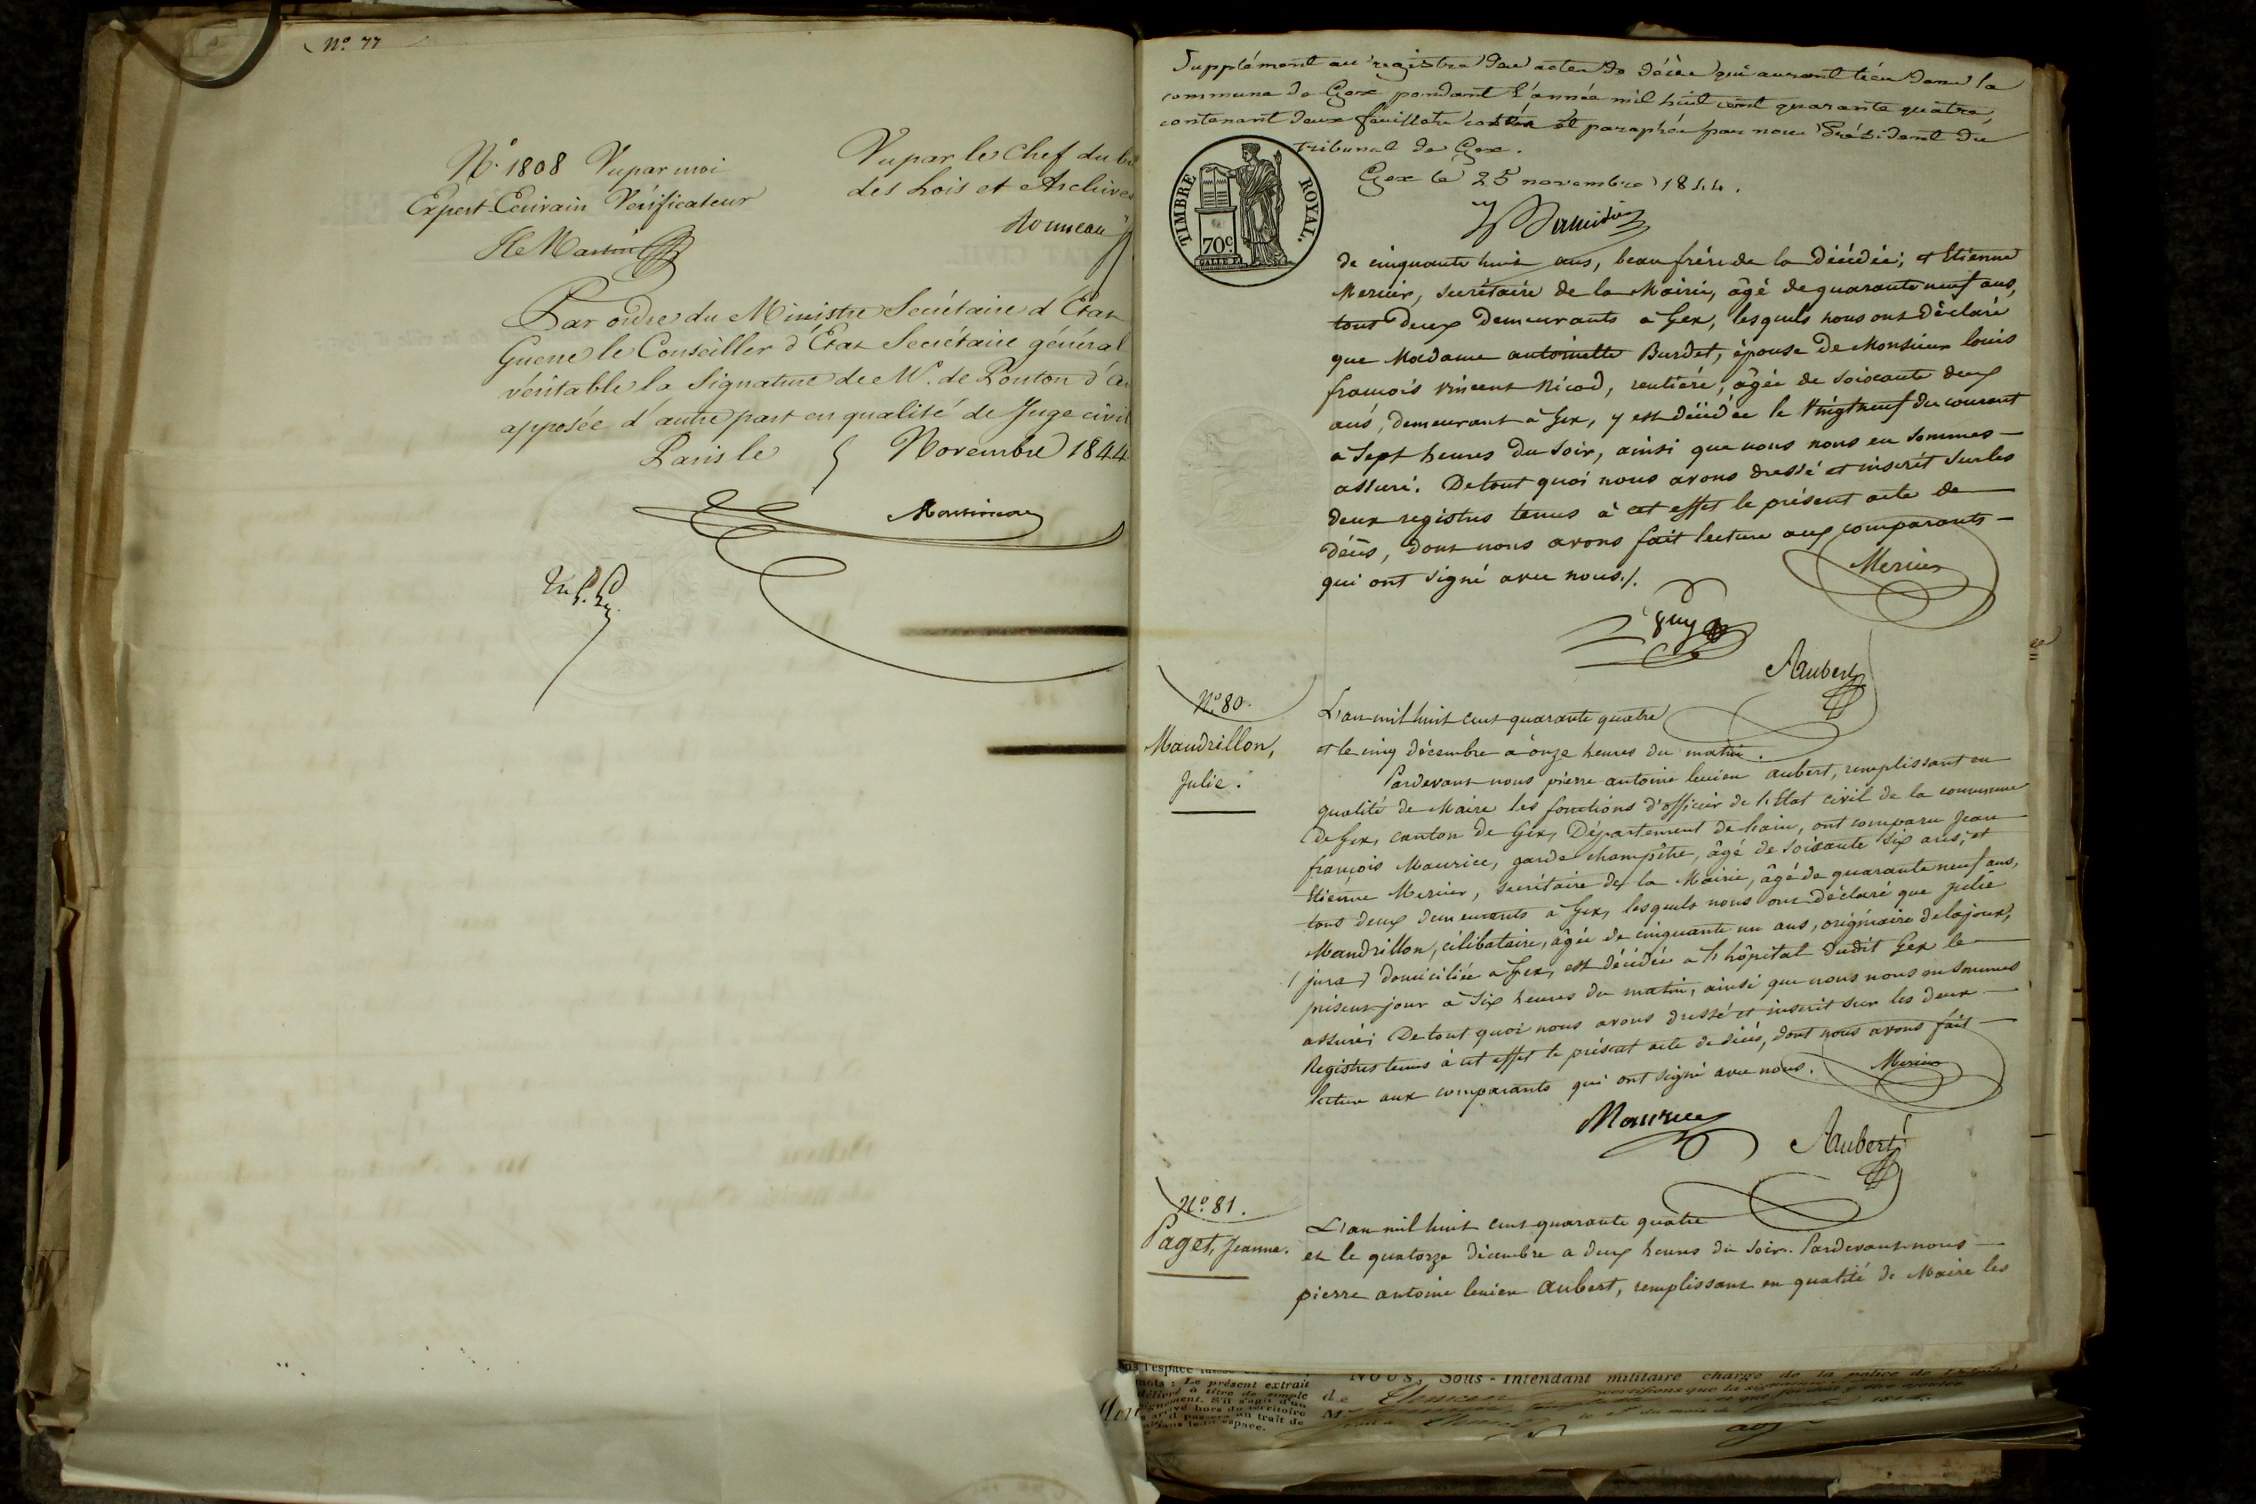 N.º 77
N.º 1808 Vu par moi
Expert Ecrivain Vérificateur
Martin
Vu par le Chef du
des Lois et Archives
Par ordre du Ministre Secrétaire d'Etat
Guerre le Conseiller d'Etat Secrétaire général
véritable la Signature de M. de
apposée d'autre part en qualité de Juge civil
Paris le 5 Novembre 1844
Martineau
Supplément au registre des actes de décès qui auront lieu dans la
commune de Gex pendant l'année mil huit cent quarante quatre,
contenant deux feuillets cottés et paraphés par nous Président du
tribunal de Gex.
Gex le 25 novembre 1844.
TIMBRE ROYAL.
70c
de cinquante huit ans, beau frère de la décédée; et Etienne
Mercier, secrétaire de la Mairie, âgé de quarante neuf ans,
tous deux demeurants à Gex, lesquels nous ont déclaré
que Madame antoinette Burdet, épouse de Monsieur louis
françois vincent Nicod, rentière, âgée de soixante deux
ans, demeurant à Gex, y est décédée le vingt neuf du courant
à sept heures du soir, ainsi que nous nous en sommes
assuré. De tout quoi nous avons dressé et inscrit sur les
deux registres tenus à cet effet le présent acte de
décès, dont nous avons fait lecture aux comparants
qui ont signé avec nous./.
Mercier
Aubert
N.º 80.
Mandrillon,
Julie.
L'an mil huit cent quarante quatre
et le cinq décembre à onze heures du matin.
Pardevant nous pierre antoine lucien aubert, remplissant en
qualité de Maire les fonctions d'officier de l'Etat civil de la commune
de Gex, canton de Gex, Département de l'ain, ont comparu Jean
françois Maurice, garde champêtre, âgé de soixante six ans, et
Etienne Mercier, secrétaire de la Mairie, âgé de quarante neuf ans,
tous deux demeurants à Gex, lesquels nous ont déclaré que julie
Mandrillon, célibataire, âgée de cinquante un ans, originaire de lajoux,
(jura) domiciliée à Gex, est décédée à l'hôpital dudit Gex le
présent jour à six heures du matin, ainsi que nous nous en sommes
assuré; De tout quoi nous avons dressé et inscrit sur les deux
Registres tenus à cet effet le présent acte de décès, dont nous avons fait
lecture aux comparants qui ont signé avec nous.
Mercier
Maurice
Aubert
N.º 81.
Paget, Jeanne.
L'an mil huit cent quarante quatre
et le quatorze décembre a deux heures du soir. Pardevant nous
pierre antoine lucien aubert, remplissant en qualité de Maire les
Le présent extrait
NOUS, Sous-Intendant militaire chargé de la police de